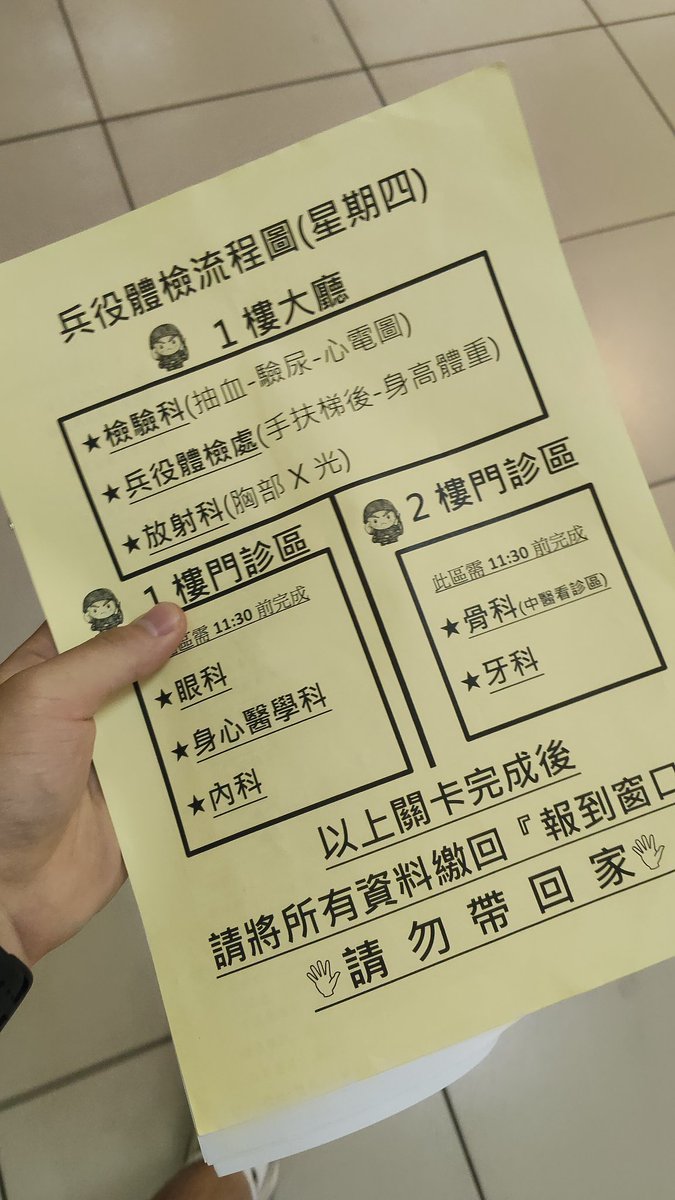 兵役體檢流程圖(星期四)
1 樓大廳
★檢驗科(抽血-驗尿-心電圖)
★兵役體檢處(手扶梯後-身高體重)
★放射科(胸部 X 光)
1 樓門診區
區需 11:30 前完成
★眼科
★身心醫學科
★內科
2 樓門診區
此區需 11:30 前完成
★骨科(中醫看診區)
★牙科
以上關卡完成後
請將所有資料繳回『報到窗口
請勿帶回家